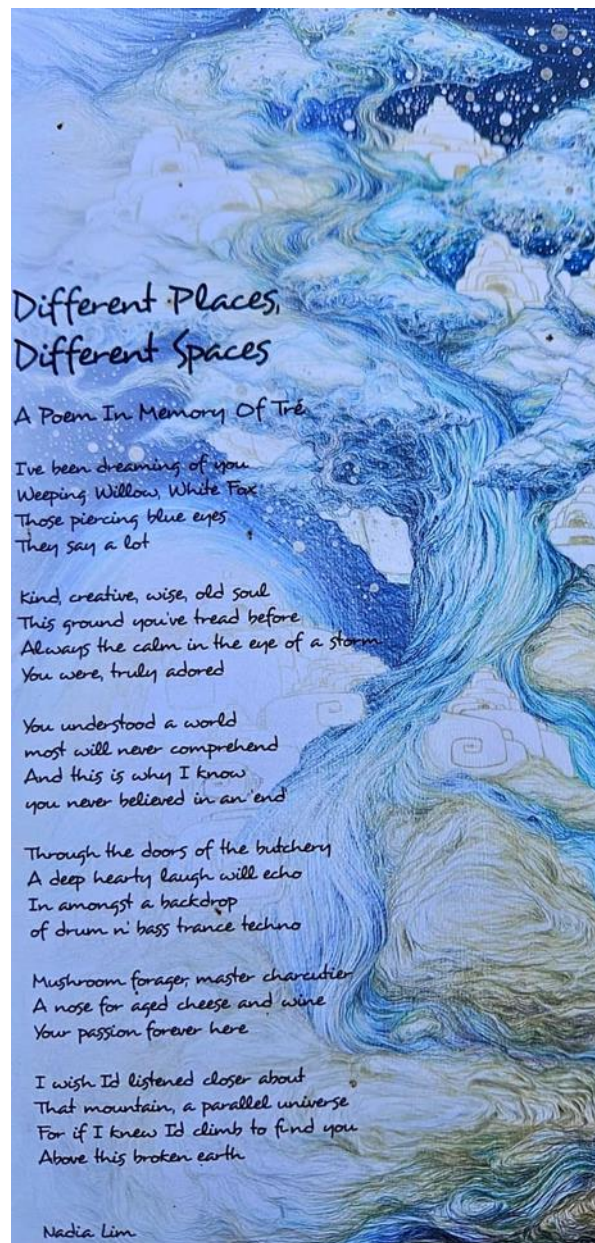 Different Places,
Different Spaces
A Poem In Memory Of Tré
I've been dreaming of you
Weeping Willow, White Fox
Those piercing blue eyes
They say a lot
Kind, creative, wise, old soul
This ground you've tread before
Always the calm in the eye of a storm
You were, truly adored
You understood a world
most will never comprehend
And this is why I know
you never believed in an 'end'
Through the doors of the butchery
A deep hearty laugh will echo
In amongst a backdrop
of drum n' bass trance techno
Mushroom forager, master charcutier
A nose for aged cheese and wine
Your passion forever here
I wish I'd listened closer about
That mountain, a parallel universe
For if I knew I'd climb to find you
Above this broken earth
Nadia Lim